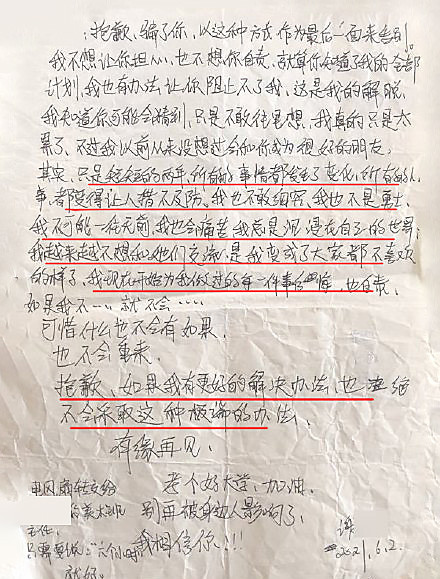 ：抱歉、骗了你，以这种方式作为最后一面来告别。
我不想让你担心，也不想你自责、就算你知道了我的全部
计划，我也有办法让你阻止不了我、这是我的解脱
我知道你可能会猜到，只是不敢往里想、我真的只是太
累了、不过我以前从来没想过会和你成为很好的朋友，
其实、只是短短的两年，所有的事情都发生了变化，所有的人
事、都变得让人措不及防、我也不敢细究、我也不是勇士
我不可能一往无前、我也会痛苦我总是沉浸在自己的世界；
我越来越不想和她们交流、是我变成了大家都不喜欢
的样子、我现在开始为我做过的每一件事后悔、也自责、
如果我不……就不会……
可惜什么也不会有如果、
也不会重来、
抱歉、如果我有更好的解决办法、也
不会采取这种极端的办法、
有缘再见、
考个好大学、加油、
别再被身边人影响了、
我相信你、!!!
转交给
美术班
主任、
只需要做
就好、
2021.6.2